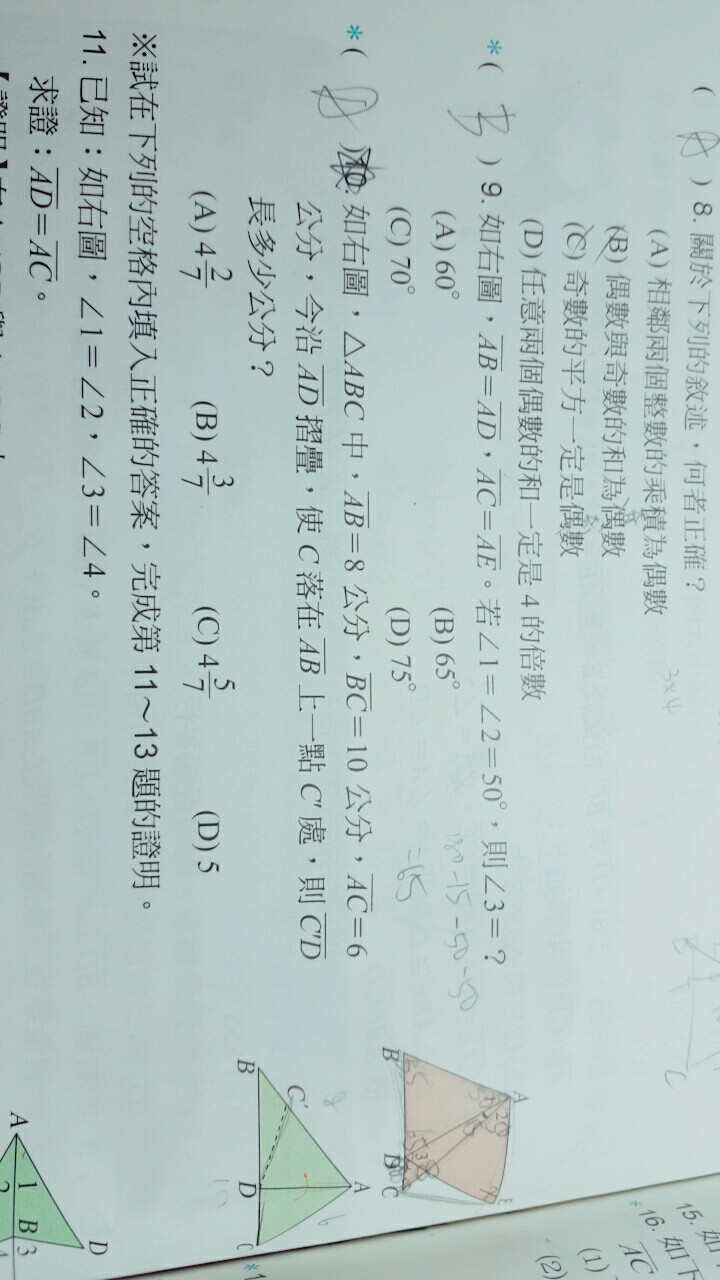 ( A ) 8. 關於下列的敘述，何者正確？
(A) 相鄰兩個整數的乘積為偶數
(B) 偶數與奇數的和為偶數
(C) 奇數的平方一定是偶數
(D) 任意兩個偶數的和一定是 4 的倍數
3×4
*( B ) 9. 如右圖，AB=AD，AC=AE。若∠1=∠2=50°，則∠3=？
(A) 60° (B) 65°
(C) 70° (D) 75°
180-15-50-50
=65
*( A ) 10. 如右圖，△ABC 中，AB=8 公分，BC=10 公分，AC=6
公分，今沿 AD 摺疊，使 C 落在 AB 上一點 C' 處，則 C'D
長多少公分？
(A) 4 2/7 (B) 4 3/7 (C) 4 5/7 (D) 5
A
B
C'
D
C
8
6
10
※試在下列的空格內填入正確的答案，完成第 11～13 題的證明。
11. 已知：如右圖，∠1=∠2，∠3=∠4。
求證：AD=AC。
A
1
2
B
3
D
15. 如
*16. 如下
AC
(1)
(2)